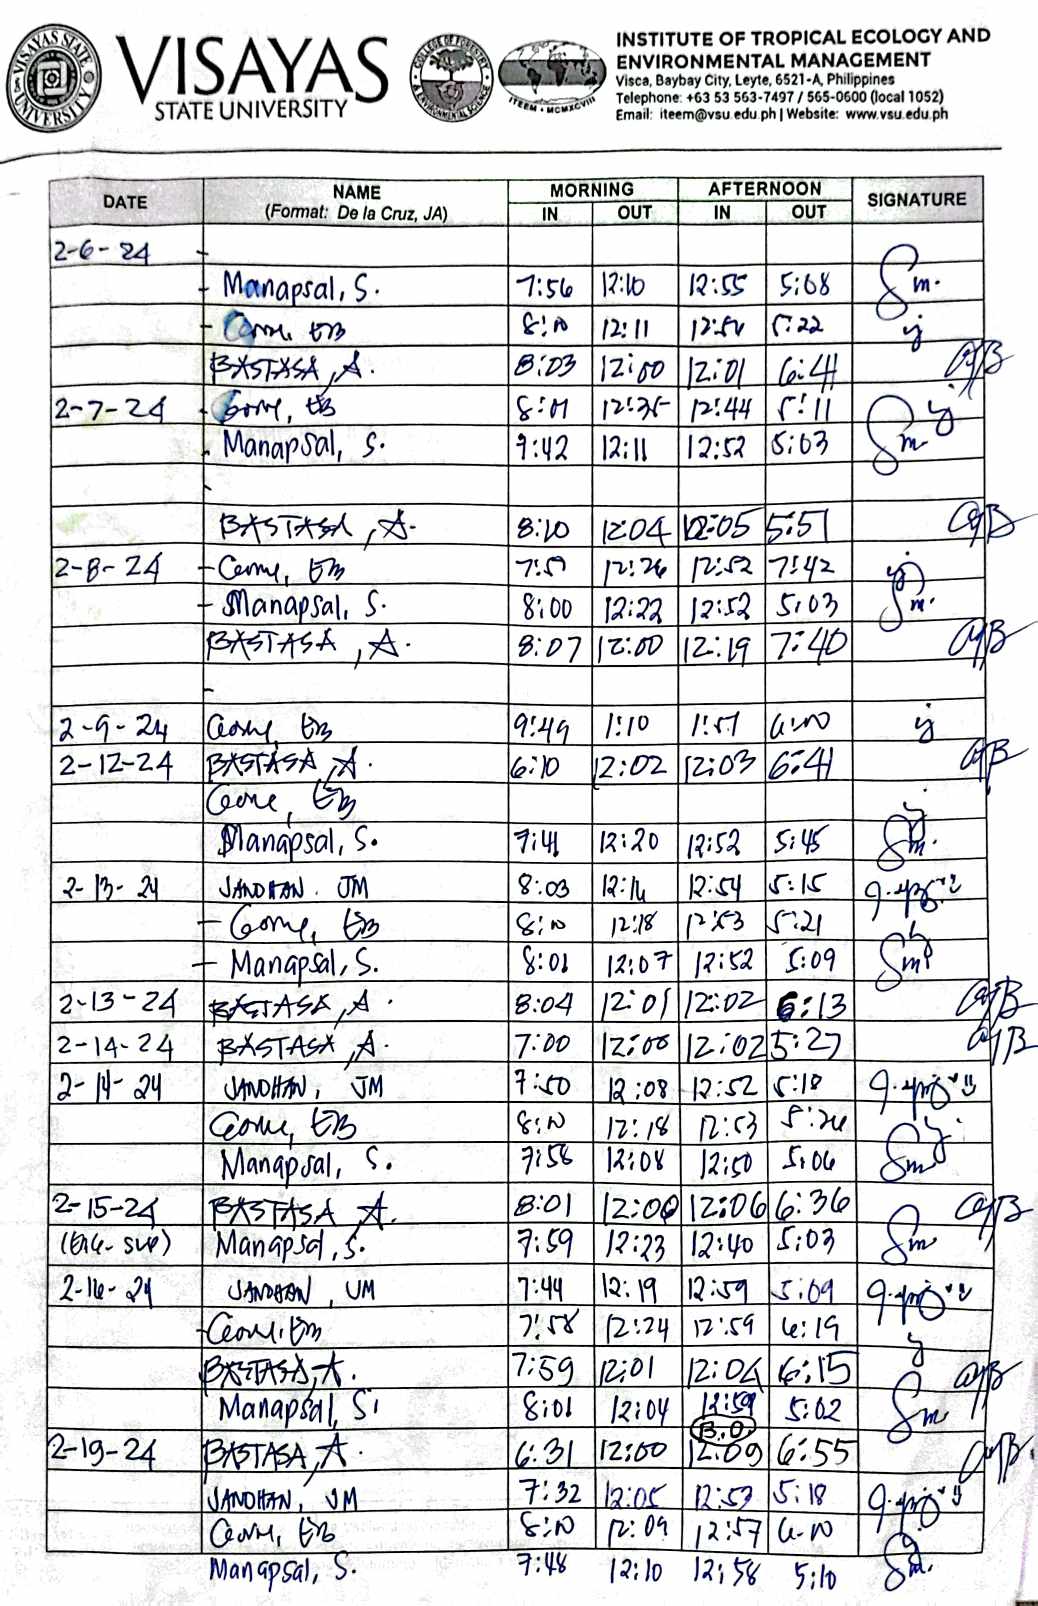 VISAYAS
STATE UNIVERSITY
VISAYAS STATE UNIVERSITY
COLLEGE OF FORESTRY & ENVIRONMENTAL SCIENCE
ITEEM • MCMXCVIII
INSTITUTE OF TROPICAL ECOLOGY AND
ENVIRONMENTAL MANAGEMENT
Visca, Baybay City, Leyte, 6521-A, Philippines
Telephone: +63 53 563-7497 / 565-0600 (local 1052)
Email: iteem@vsu.edu.ph | Website: www.vsu.edu.ph
DATE NAME MORNING AFTERNOON SIGNATURE
(Format: De la Cruz, JA) IN OUT IN OUT
2-6-24 -
- Manapsal, S. 7:56 12:10 12:55 5:08 Sm.
- 12:11 5:22
BASTASA, A. 8:03 12:00 12:01 6:41 AJB
2-7-24 - 12:44 5:11
Manapsal, S. 9:42 12:11 12:52 5:03 Sm.
BASTASA, A. 8:20 12:04 12:05 5:51 AJB
2-8-24 - 12:26 12:52 7:42
- Manapsal, S. 8:00 12:22 12:52 5:03 Sm.
BASTASA, A. 8:07 12:00 12:19 7:40 AJB
-
2-9-24 9:49 1:10
2-12-24 BASTASA, A. 6:10 12:02 12:03 6:41 AJB
Manapsal, S. 7:41 12:20 12:52 5:45 Sm.
2-13-24 JANDHAN, JM 8:03 12:16 12:54 5:15
- 12:18 12:53 5:21
- Manapsal, S. 8:01 12:07 12:52 5:09 Sm
2-13-24 BASTASA, A. 8:04 12:01 12:02 6:13 AJB
2-14-24 BASTASA, A. 7:00 12:00 12:02 5:27 AJB
2-14-24 JANDHAN, JM 7:50 12:08 12:52 5:18
12:18 12:53 5:26
Manapsal, S. 7:58 12:08 12:50 5:06 Sm
2-15-24 BASTASA, A. 8:01 12:00 12:06 6:36 AJB
Manapsal, S. 7:59 12:23 12:40 5:03 Sm
2-16-24 JANDHAN, JM 7:44 12:19 12:59 5:09
- 7:58 12:24 12:59 6:19
BASTASA, A. 7:59 12:01 12:04 6:15 AJB
Manapsal, S. 8:01 12:04 12:59 5:02 Sm
2-19-24 BASTASA, A. 6:31 12:00 12:09 6:55 AJB
JANDHAN, JM 7:32 12:05 12:53 5:18
12:09 12:57
Manapsal, S. 7:48 12:10 12:58 5:10 Sm.